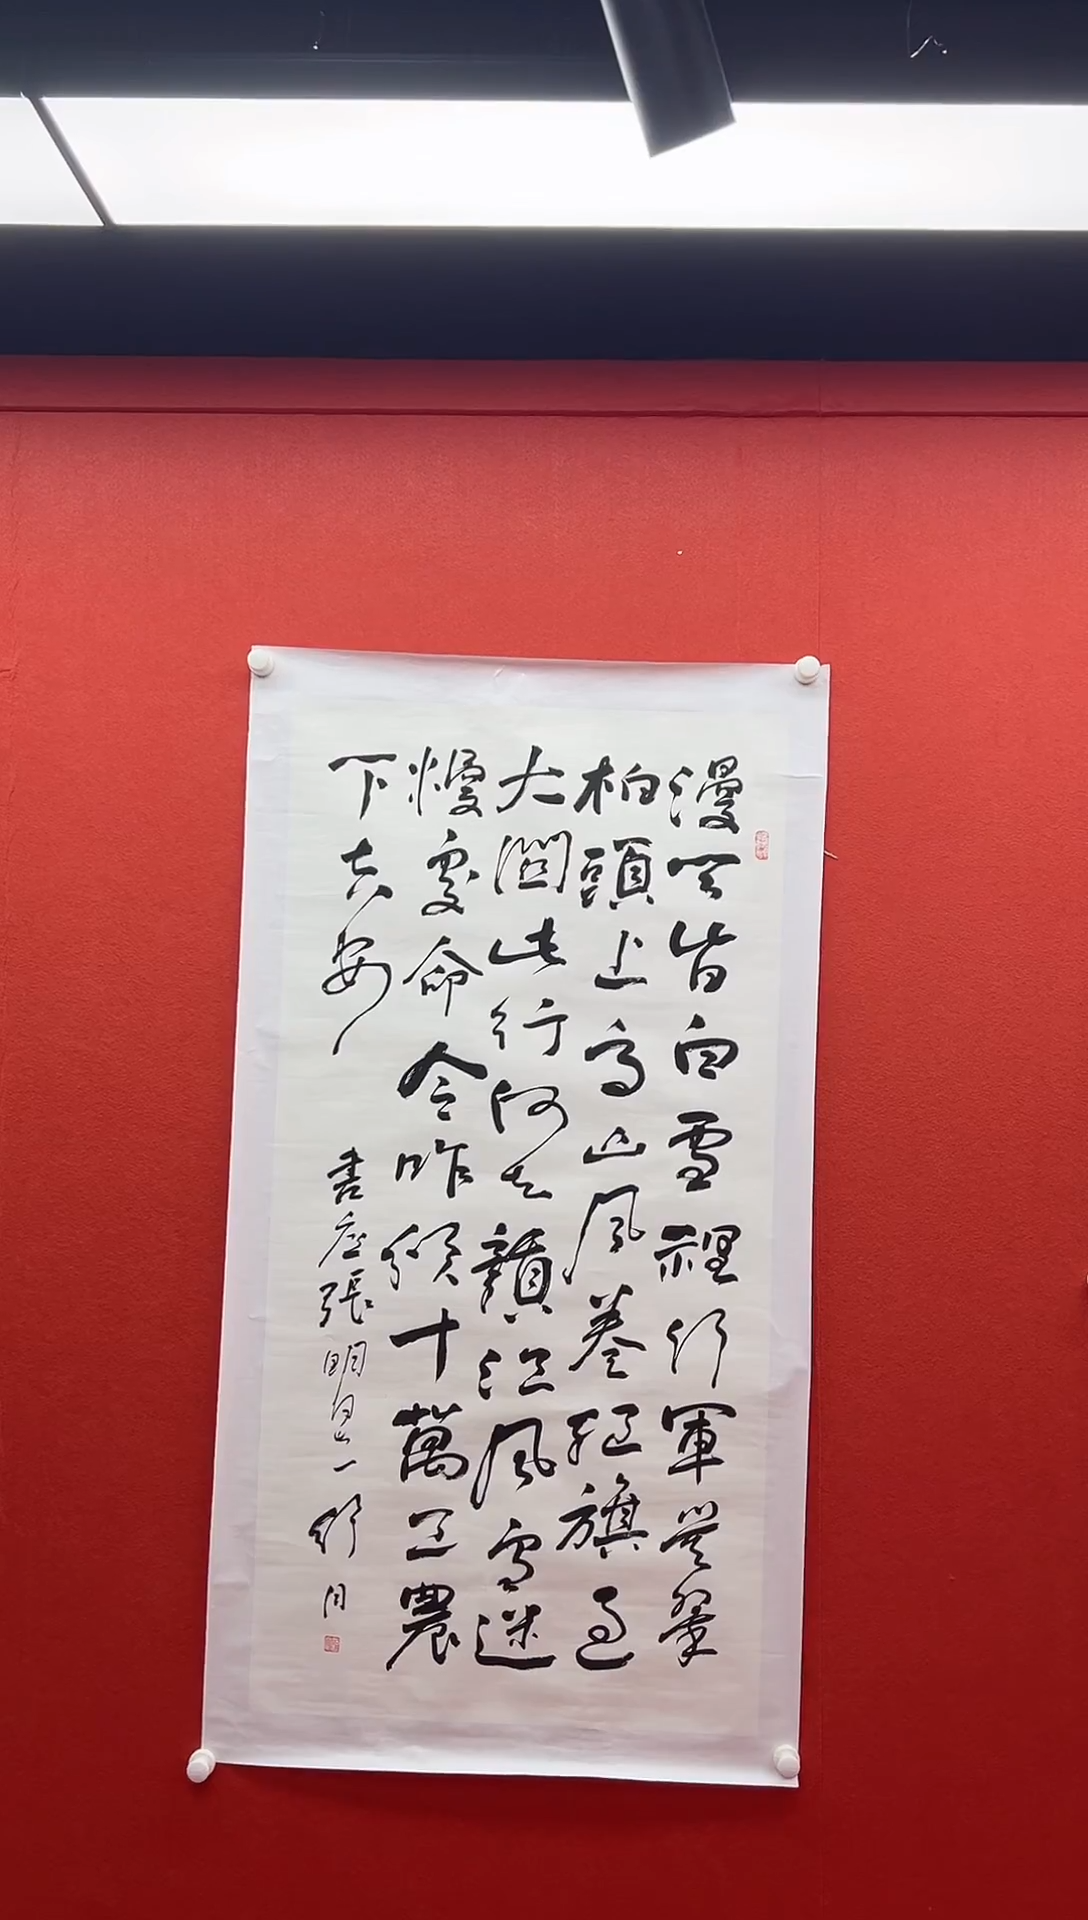 漫天皆白雪裡行軍無翠
柏頭上高山風卷紅旗過
大關此行何去贛江風雪迷
熳處命令昨頒十萬工農
下吉安
書应張明